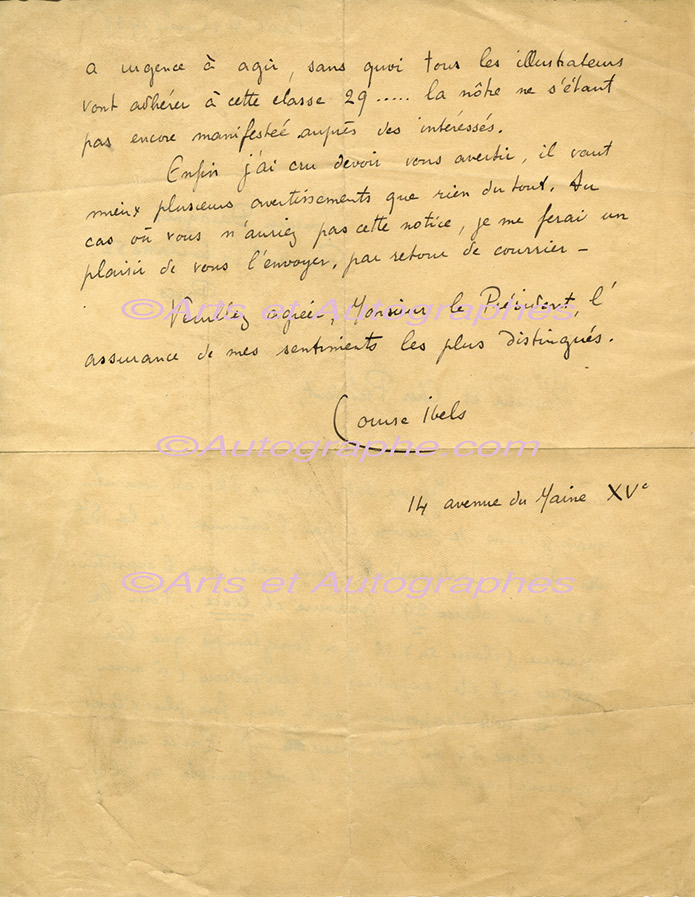 a urgence à agir, sans quoi tous les illustrateurs
vont adhérer à cette classe 29..... la nôtre ne s'étant
pas encore manifesteé auprès des intéréssés.
Enfin j'ai cru devoir vous avertir, il vaut
mieux plusieurs avertissements que rien du tout. Au
cas où vous n'auriez pas cette notice, je me ferai un
plaisir de vous l'envoyer, par retour de courrier –
©Arts et Autographes
Veuillez agréer, Monsieur le Président, l'
assurance de mes sentiments les plus distingués.
Louise Ibels
©Autographe.com
14 avenue du Maine XVe
©Arts et Autographes